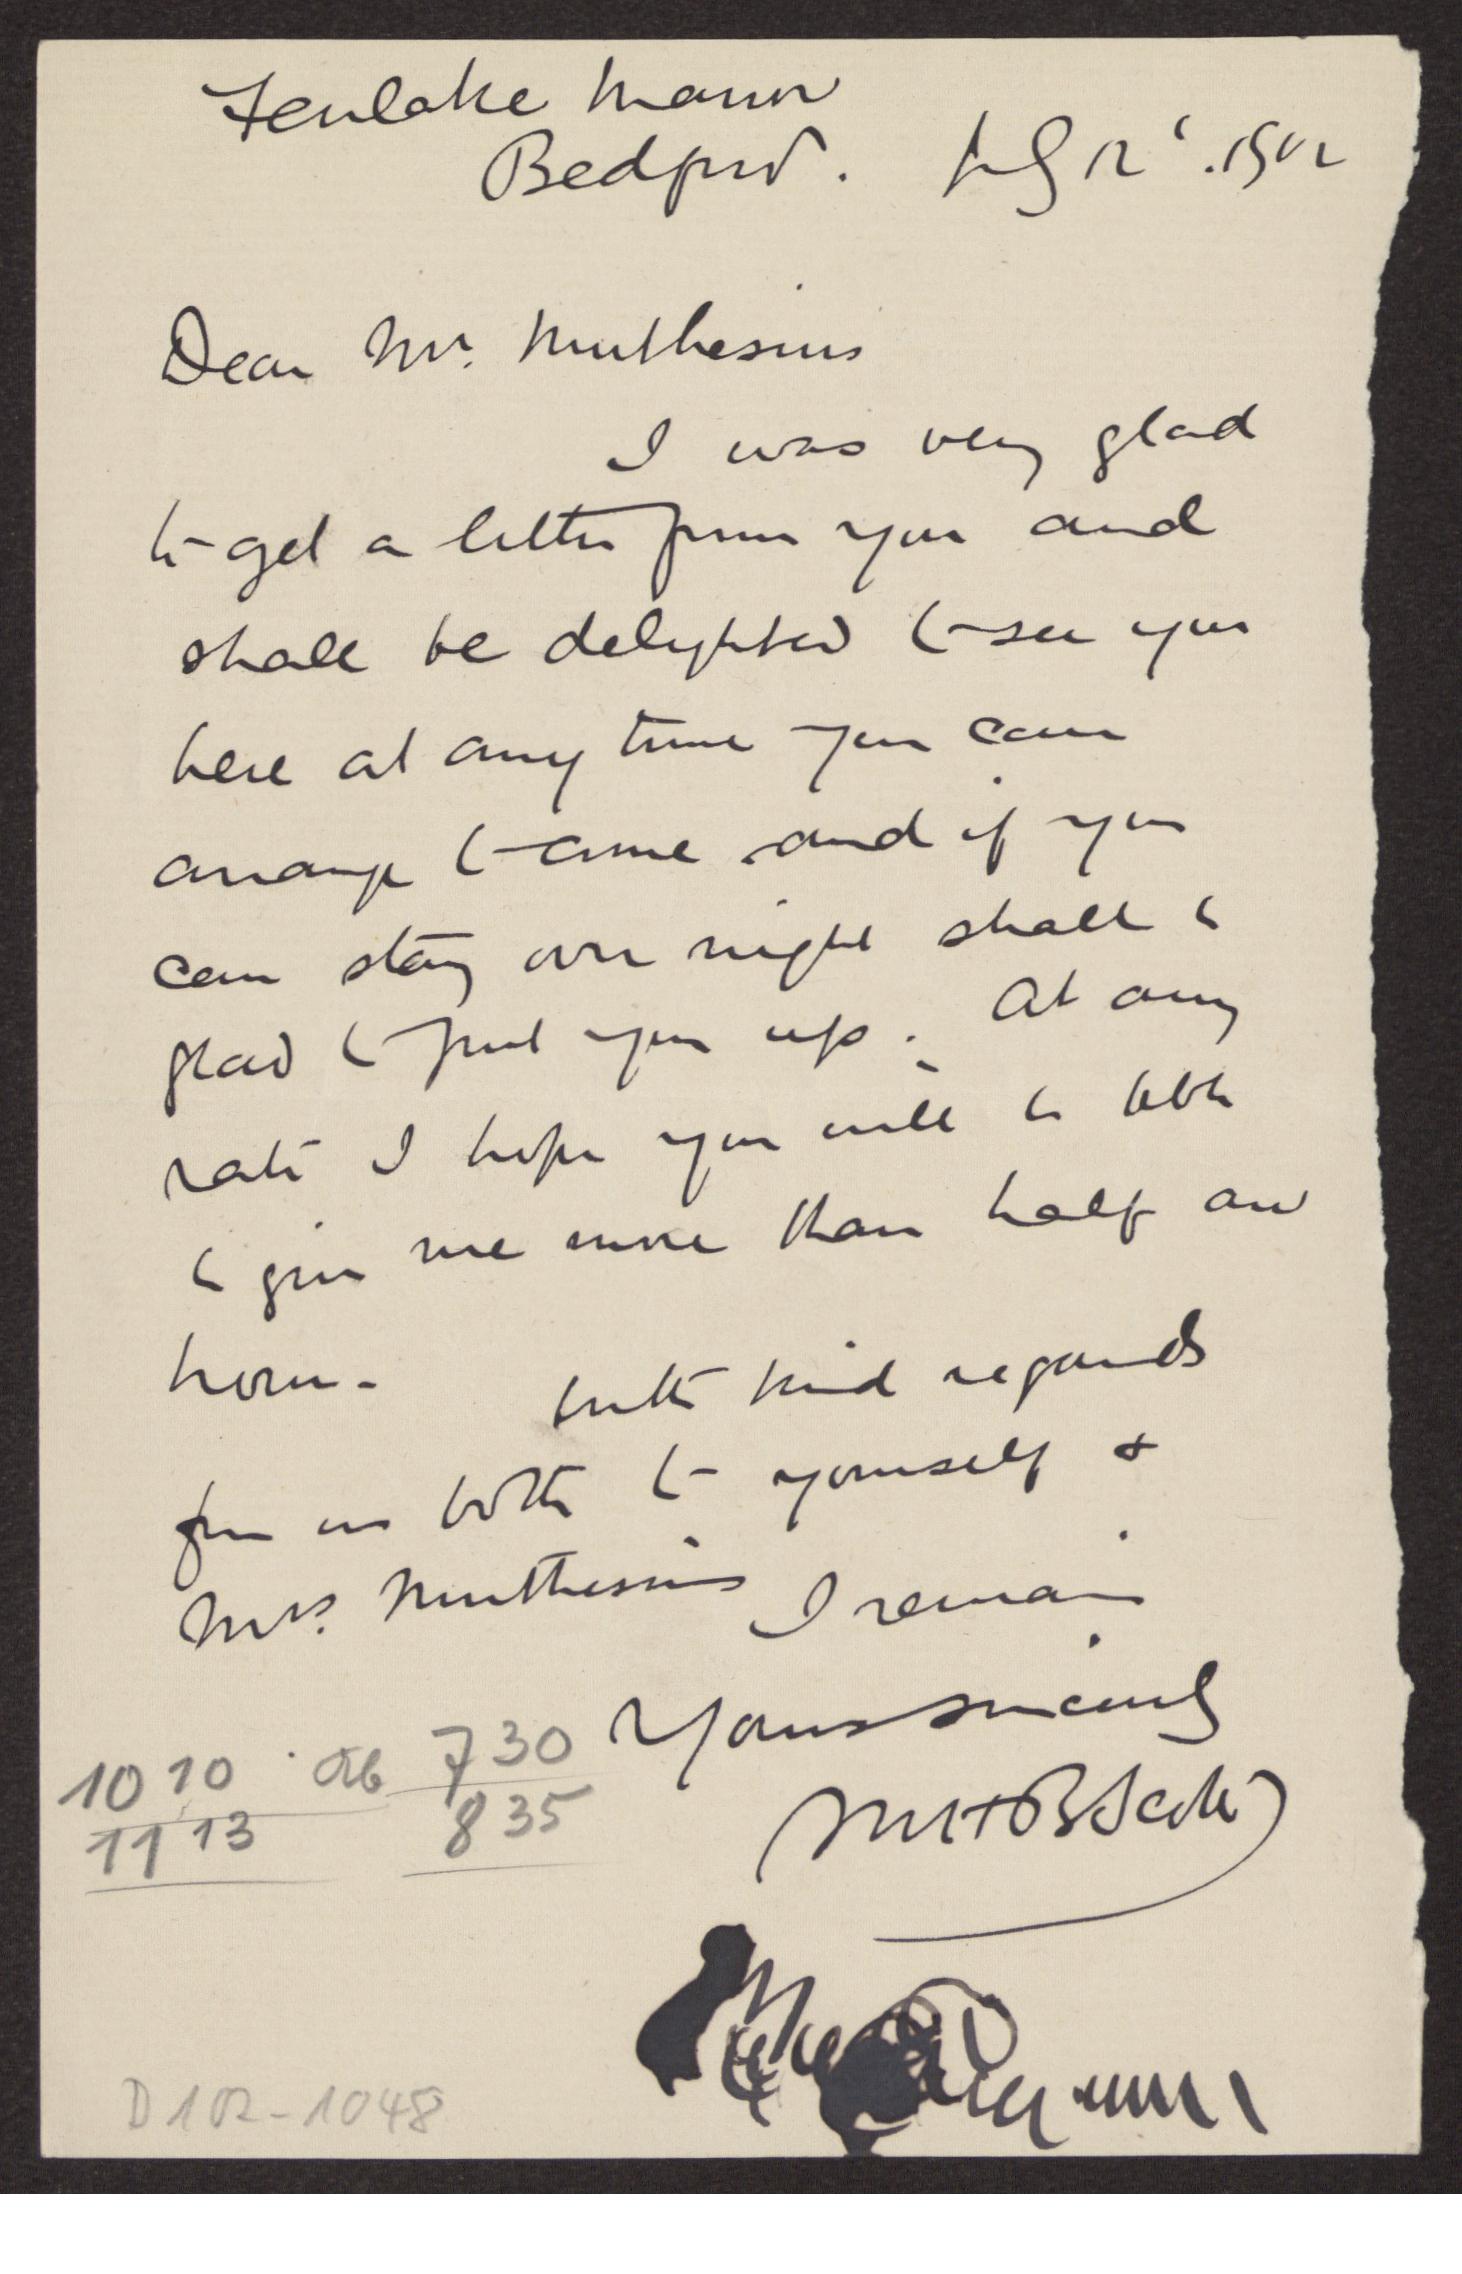 Fenlake Manor
Bedford. July 12th. 1902
Dear Mr. Muthesius
I was very glad
to get a letter from you and
shall be delighted to see you
here at any time you can
arrange to come and if you
can stay over night shall be
glad to put you up. At any
rate I hope you will be able
to give me more than half an
hour. With kind regards
from us both to yourself &
Mrs. Muthesius I remain
Yours sincerely
M H B Scott
10 10 ab 7 30
11 13 8 35
D 102-1048